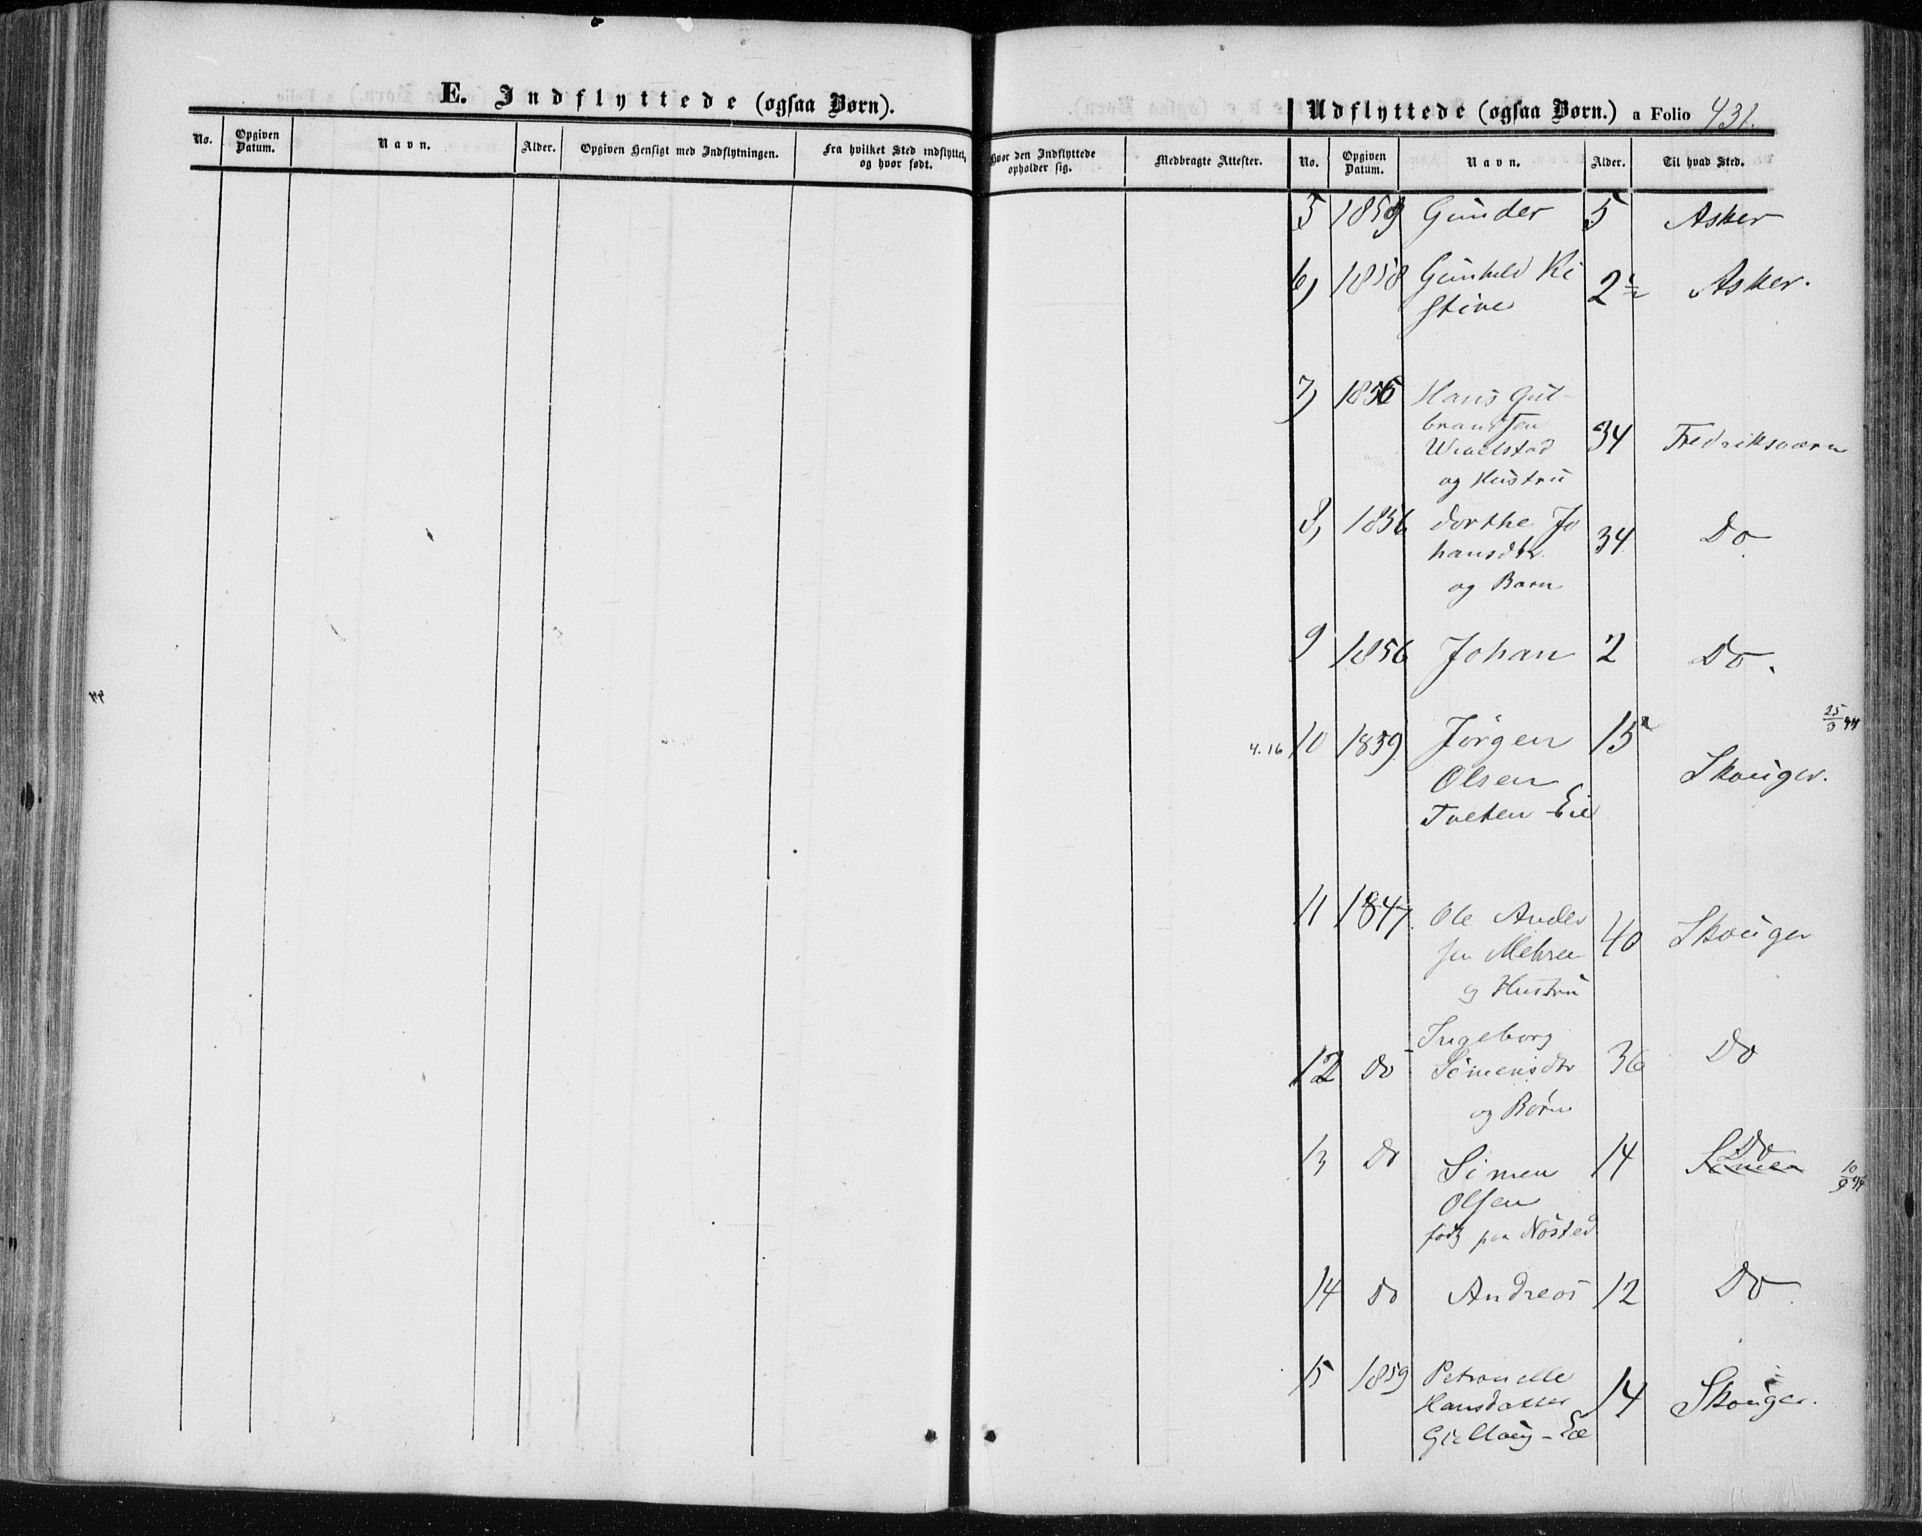 E. Indflyttede (ogsaa Børn).
No.
Opgiven Datum.
Navn.
Alder.
Opgiven Hensigt med Indflytningen.
Fra hvilket Sted indflyttet, og hvor født.
Hvor den Indflyttede opholder sig.
Medbragte Attester.
Udflyttede (ogsaa Børn.) a Folio 431.
No.
Opgiven Datum.
Navn.
Alder.
Til hvad Sted.
5 1859 Gunder 5 Asker
6, 1858 Gunhild Ki
stine 2½ Asker.
7, 1856 Hans Gul
brandsen
og Hustru 34 Fredriksværn
8, 1856 Dorthe Jo
hansdtr
og Barn 34 Do
9 1856 Johan 2 Do.
4.16 10 1859. Jørgen
Olsen
Tveten Eie 15 Skouger. 25/3 44
11 1847. Ole Ander
sen Mehren
og Hustru 40 Skouger
12 Do Ingeborg
Simensdtr
og Børn 36 Do
13 Do Simen
Olsen
født paa Nøsted 14 Do Simen 10/9 44
14 Do Andreas 12 Do
15 1859 Petronelle
Hansdatter
14 Skouger.